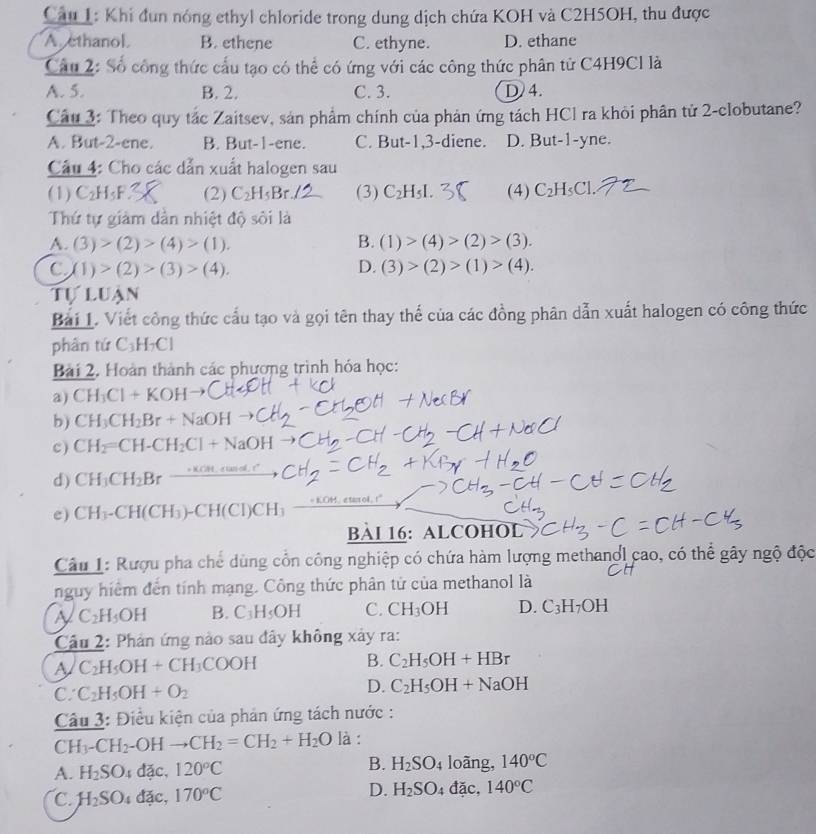 Câu 1: Khi đun nóng ethyl chloride trong dung dịch chứa KOH và C2H5OH, thu được
A. ethanol. B. ethene C. ethyne. D. ethane
Câu 2: Số công thức cấu tạo có thể có ứng với các công thức phân tử C4H9Cl là
A. 5. B. 2. C. 3. D. 4.
Câu 3: Theo quy tắc Zaitsev, sản phẩm chính của phản ứng tách HCl ra khỏi phân tử 2-clobutane?
A. But-2-ene. B. But-1-ene. C. But-1,3-diene. D. But-1-yne.
Câu 4: Cho các dẫn xuất halogen sau
(1) C₂H₅F. 38 (2) C₂H₅Br. 12 (3) C₂H₅I. 38 (4) C₂H₅Cl. 72
Thứ tự giảm dần nhiệt độ sôi là
A. (3) > (2) > (4) > (1). B. (1) > (4) > (2) > (3).
C. (1) > (2) > (3) > (4). D. (3) > (2) > (1) > (4).
TỰ LUẬN
Bài 1. Viết công thức cấu tạo và gọi tên thay thế của các đồng phân dẫn xuất halogen có công thức
phân tử C₃H₇Cl
Bài 2. Hoàn thành các phương trình hóa học:
a) CH₃Cl + KOH → + KCl
b) CH₃CH₂Br + NaOH → CH₂ - CH₂OH +
c) CH₂=CH-CH₂Cl + NaOH → CH₂ - CH - CH₂ - CH +
d) CH₃CH₂Br +KOH, etanol, t° → CH₂ = CH₂ + KBr + H₂O
→ CH₃ - CH - CH = CH₂
CH₃
e) CH₃-CH(CH₃)-CH(Cl)CH₃ +KOH, etanol, t° →
BÀI 16: ALCOHOL → CH₃ - C = CH - CH₃
CH
Câu 1: Rượu pha chế dùng cồn công nghiệp có chứa hàm lượng methanol cao, có thể gây ngộ độc
nguy hiểm đến tính mạng. Công thức phân tử của methanol là
A. C₂H₅OH B. C₃H₅OH C. CH₃OH D. C₃H₇OH
Câu 2: Phản ứng nào sau đây không xảy ra:
A. C₂H₅OH + CH₃COOH B. C₂H₅OH + HBr
C. C₂H₅OH + O₂ D. C₂H₅OH + NaOH
Câu 3: Điều kiện của phản ứng tách nước :
CH₃-CH₂-OH → CH₂ = CH₂ + H₂O là :
A. H₂SO₄ đặc, 120°C B. H₂SO₄ loãng, 140°C
C. H₂SO₄ đặc, 170°C D. H₂SO₄ đặc, 140°C